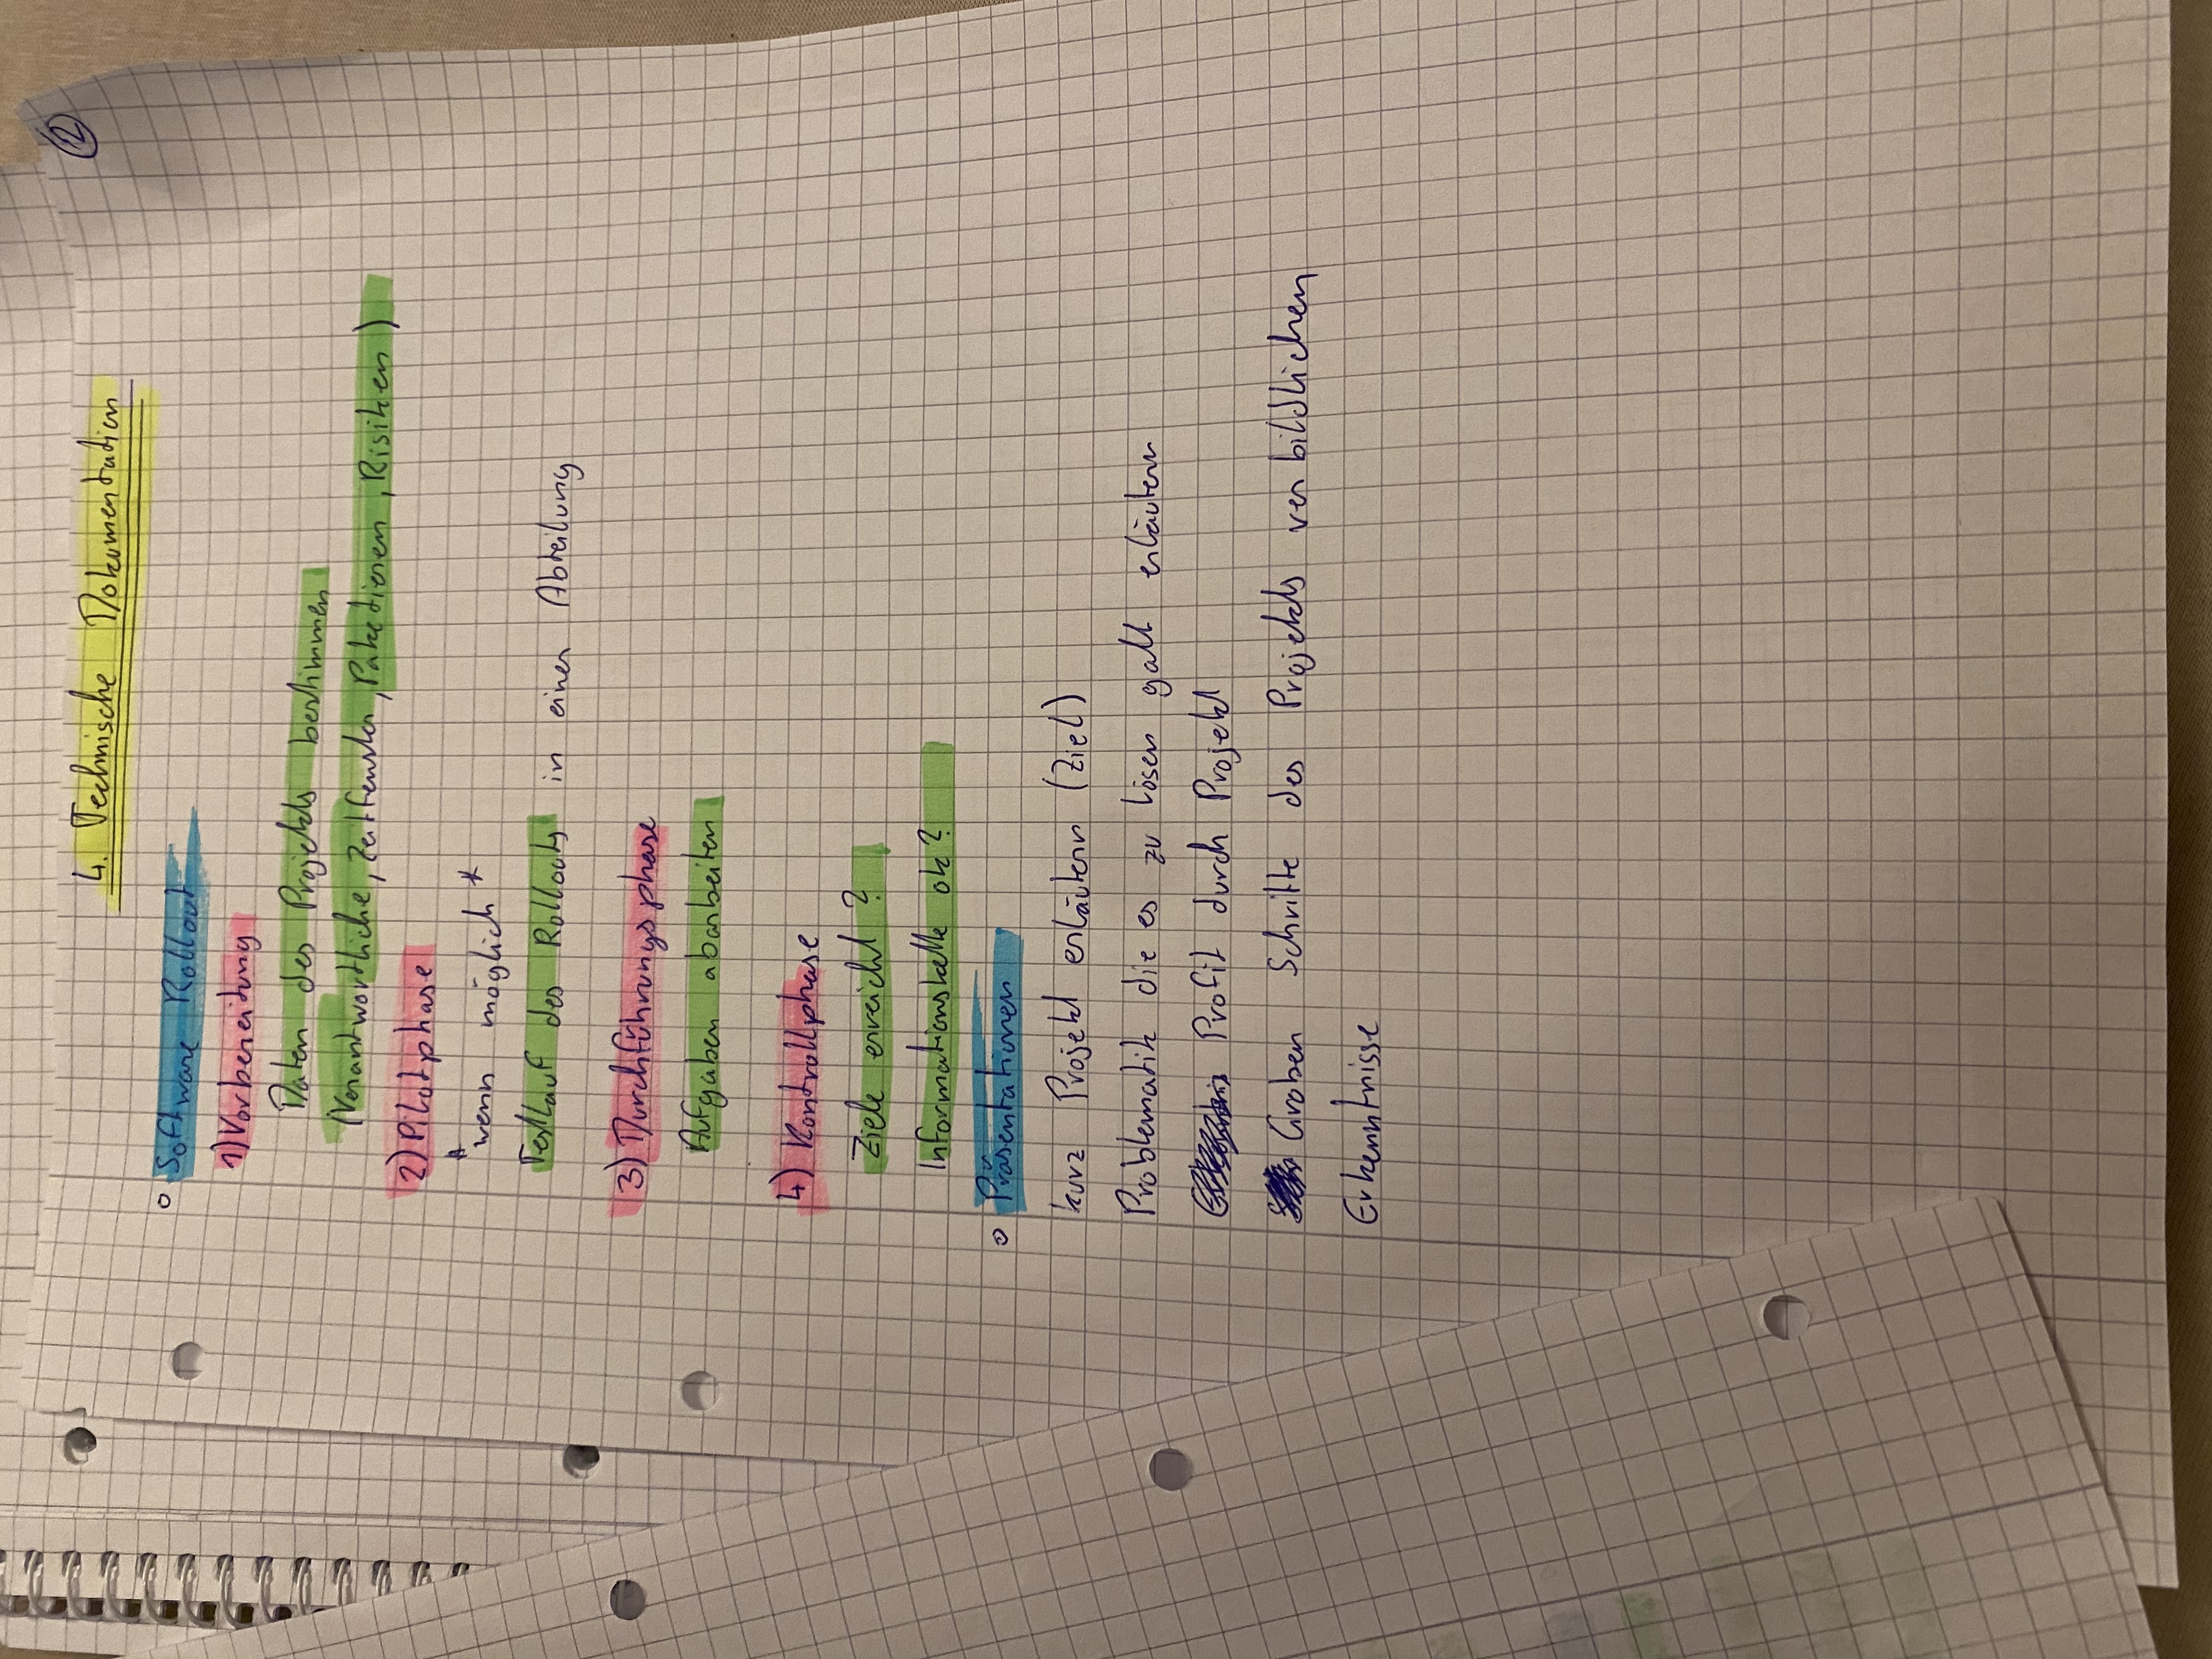 2
4. Technische Dokumentation
o Software Rollout
1) Vorbereitung
Daten des Projekts bestimmen
(Verantwortliche, Zeitfenster, Paketieren, Risiken)
2) Pilotphase
*wenn möglich*
Testlauf des Rollouts in einer Abteilung
3) Durchführungsphase
Aufgaben abarbeiten
4) Kontrollphase
Ziele erreicht?
Informationskette ok?
o Präsentationen
kurz Projekt erläutern (Ziel)
Problematik die es zu lösen galt erläutern
Profit durch Projekt
Groben Schritte des Projekts verbildlichen
Erkenntnisse